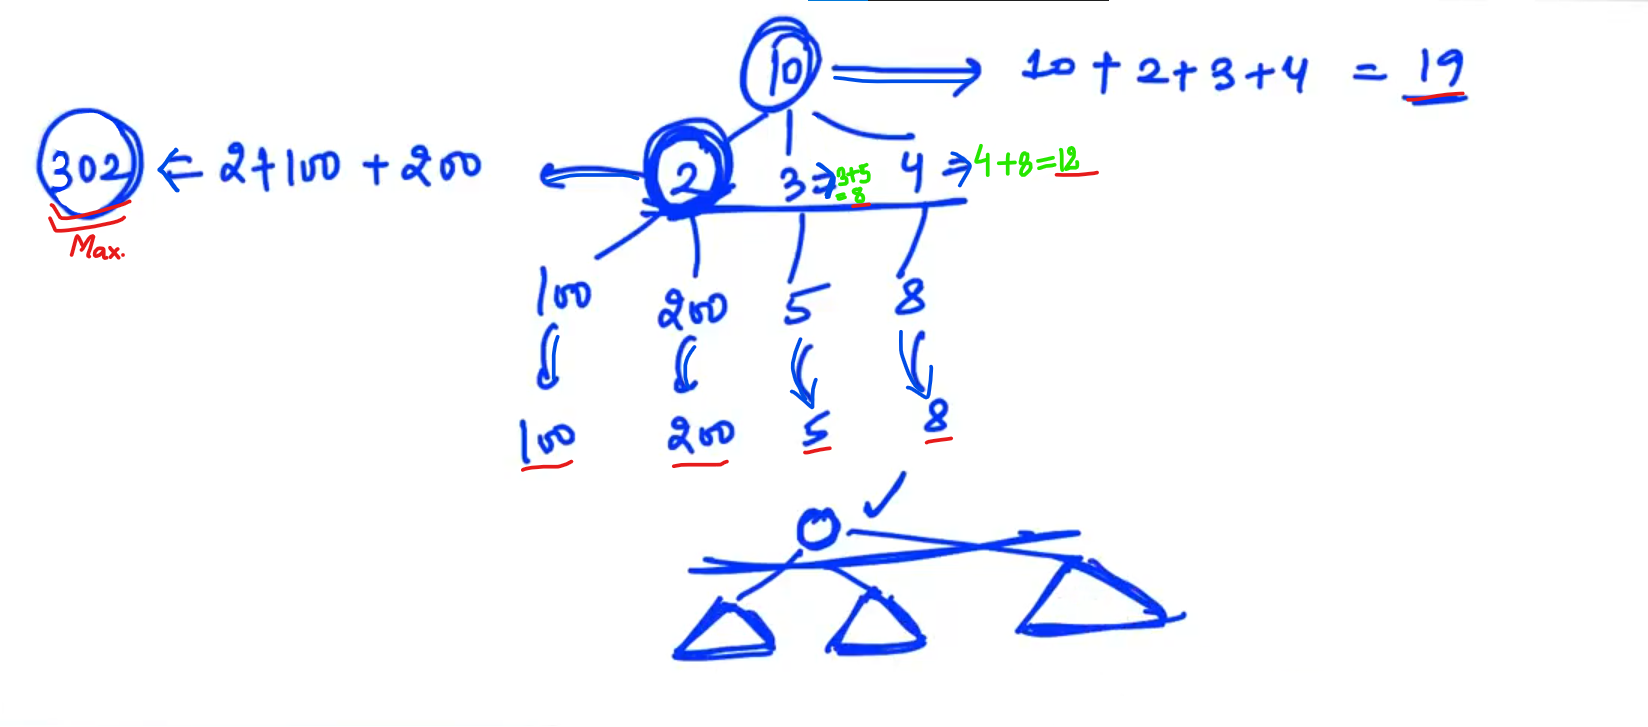 10 ⇒ 10 + 2 + 3 + 4 = 19
302 ⇐ 2 + 100 + 200 ⇐ 2
Max.
3 ⇒ 3+5
= 8
4 ⇒ 4+8=12
100 200 5 8
100 200 5 8